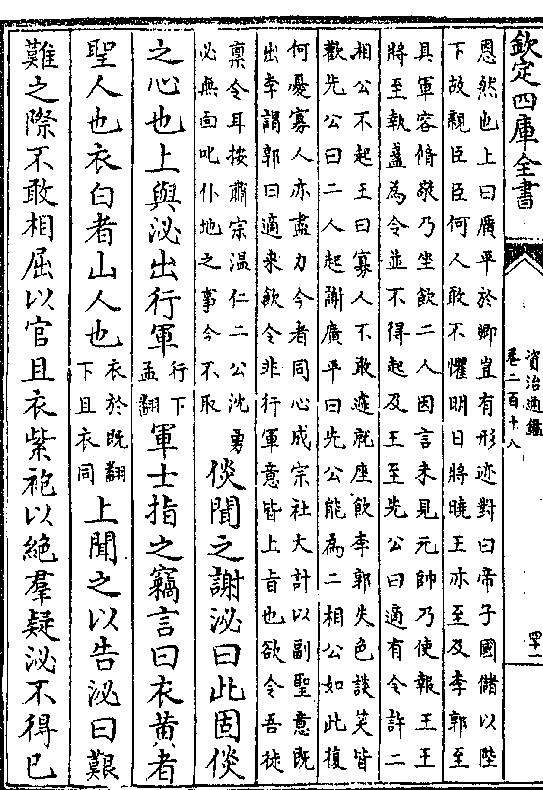 欽定四庫全書
資治通鑑
卷二百十八
四十一
恩然也上曰廣平於卿豈有形迹對曰帝子國儲以陛
下故親臣臣何人敢不懼明日將曉王亦至及李郭至
具軍容脩敬乃坐飲二人因言未見元帥乃使報王王
將至執盞為令並不得起及王至先公曰適有令許二
相公不起王曰寡人不敢遽就座飲李郭失色談笑皆
歡先公曰二人起謝廣平曰先公能為二相公如此復
何憂寡人亦盡力今者同心成宗社大計以副聖意既
出李謂郭曰適來飲令非行軍意皆上旨也欲令吾徒
稟令耳按肅宗温仁二公沈勇
必無面叱仆地之事今不取
倓聞之謝泌曰此固倓
之心也上與泌出行軍行下孟翻軍士指之竊言曰衣黄者
聖人也衣白者山人也衣於既翻下且衣同上聞之以告泌曰艱
難之際不敢相屈以官且衣紫袍以絶羣疑泌不得已